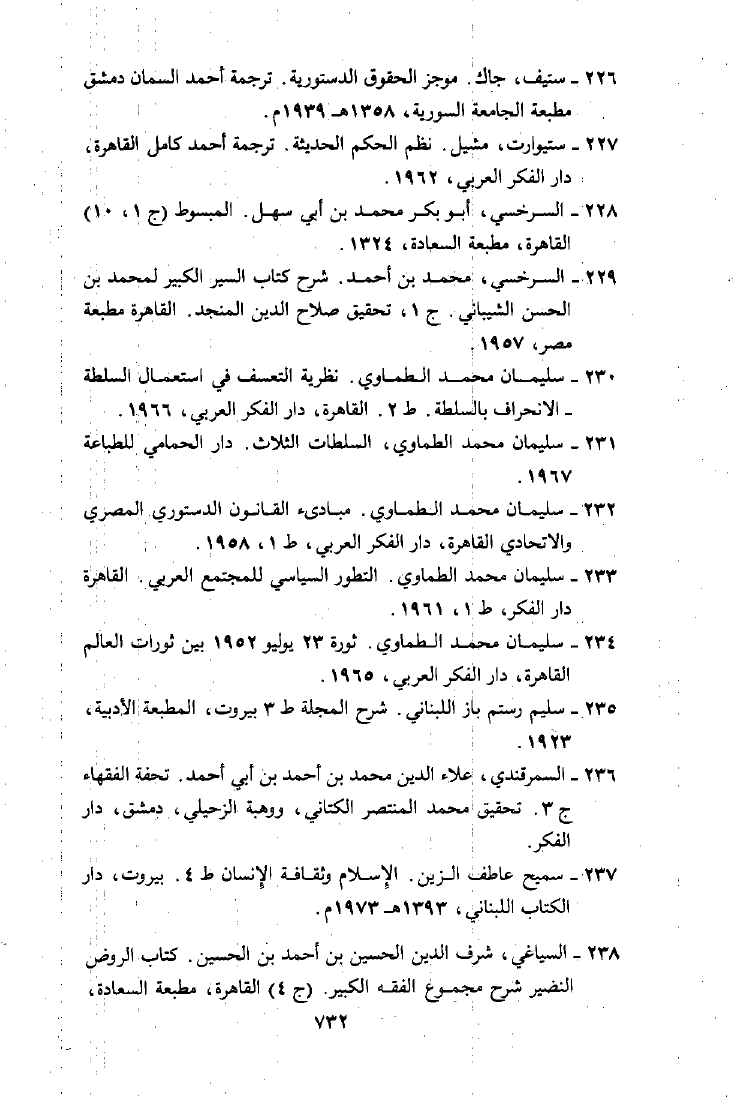 ٢٢٦ ـ ستيف، جاك. موجز الحقوق الدستورية. ترجمة أحمد السمان دمشق
مطبعة الجامعة السورية، ١٣٥٨هـ ١٩٣٩م.
٢٢٧ ـ ستيوارت، مشيل. نظم الحكم الحديثة. ترجمة أحمد كامل القاهرة،
دار الفكر العربي، ١٩٦٢.
٢٢٨ ـ السرخسي، أبو بكر محمد بن أبي سهل. المبسوط (ج ١، ١٠)
القاهرة، مطبعة السعادة، ١٣٢٤.
٢٢٩ ـ السرخسي، محمد بن أحمد. شرح كتاب السير الكبير لمحمد بن
الحسن الشيباني. ج ١، تحقيق صلاح الدين المنجد. القاهرة مطبعة
مصر، ١٩٥٧.
٢٣٠ ـ سليمان محمد الطماوي. نظرية التعسف في استعمال السلطة
ـ الانحراف بالسلطة. ط ٢. القاهرة، دار الفكر العربي، ١٩٦٦.
٢٣١ ـ سليمان محمد الطماوي، السلطات الثلاث. دار الحمامي للطباعة
١٩٦٧.
٢٣٢ ـ سليمان محمد الطماوي. مبادىء القانون الدستوري المصري
والاتحادي القاهرة، دار الفكر العربي، ط ١، ١٩٥٨.
٢٣٣ ـ سليمان محمد الطماوي. التطور السياسي للمجتمع العربي. القاهرة
دار الفكر، ط ١، ١٩٦١.
٢٣٤ ـ سليمان محمد الطماوي. ثورة ٢٣ يوليو ١٩٥٢ بين ثورات العالم
القاهرة، دار الفكر العربي، ١٩٦٥.
٢٣٥ ـ سليم رستم باز اللبناني. شرح المجلة ط ٣ بيروت، المطبعة الأدبية،
١٩٢٣.
٢٣٦ ـ السمرقندي، علاء الدين محمد بن أحمد بن أبي أحمد. تحفة الفقهاء
ج ٣. تحقيق محمد المنتصر الكتاني، ووهبة الزحيلي، دمشق، دار
الفكر.
٢٣٧ ـ سميح عاطف الزين. الإسلام وثقافة الإنسان ط ٤. بيروت، دار
الكتاب اللبناني، ١٣٩٣هـ ١٩٧٣م.
٢٣٨ ـ السياغي، شرف الدين الحسين بن أحمد بن الحسين. كتاب الروض
النضير شرح مجموع الفقه الكبير. (ج ٤) القاهرة، مطبعة السعادة،
٧٣٢